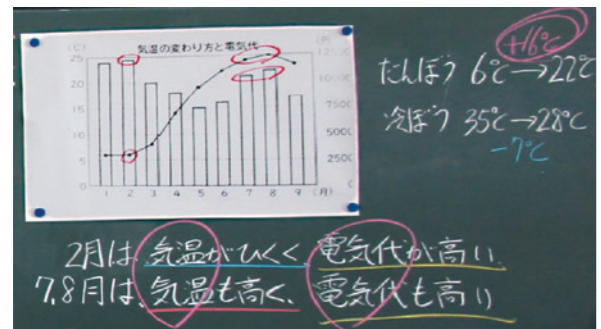 気温の変わり方と電気代
(C)
(円)
25
20
15
10
5
0
10000
7500
5000
2500
1 2 3 4 5 6 7 8 9 (月)
+16℃
だんぼう 6℃→22℃
冷ぼう 35℃→28℃
-7℃
2月は、気温がひくく、電気代が高い。
7,8月は、気温も高く、電気代も高い